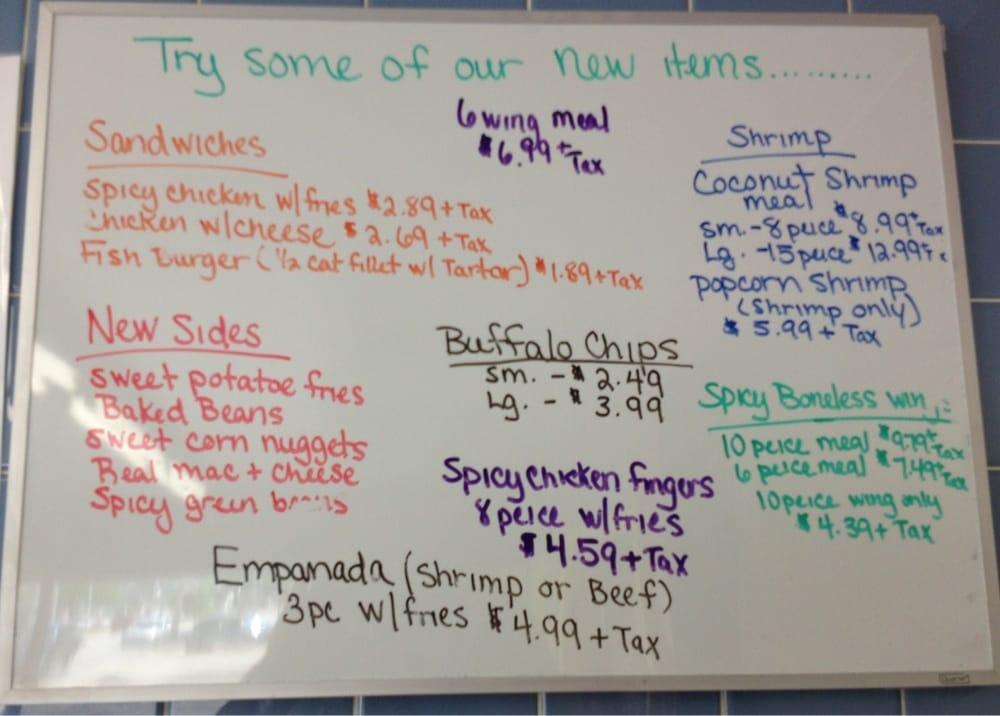 Try some of our new items.........
6 wing meal
$6.99 + Tax
Sandwiches
Spicy chicken w/fries $2.89 + Tax
Chicken w/cheese $2.69 + Tax
Fish Burger (1/2 cat fillet w/ Tartar) $1.89 + Tax
Shrimp
Coconut Shrimp
meal
sm. - 8 peice $8.99 + Tax
Lg. - 15 peice $12.99 +
popcorn Shrimp
(Shrimp only)
$5.99 + Tax
New Sides
sweet potatoe fries
Baked Beans
sweet corn nuggets
Real mac + cheese
Spicy green
Buffalo Chips
sm. - $2.49
Lg. - $3.99
Spicy Boneless
10 peice meal $9.79 + Tax
6 peice meal $7.49 + Tax
10 peice wing only
$4.39 + Tax
Spicy chicken fingers
8 peice w/fries
$4.59 + Tax
Empanada (Shrimp or Beef)
3pc w/fries $4.99 + Tax